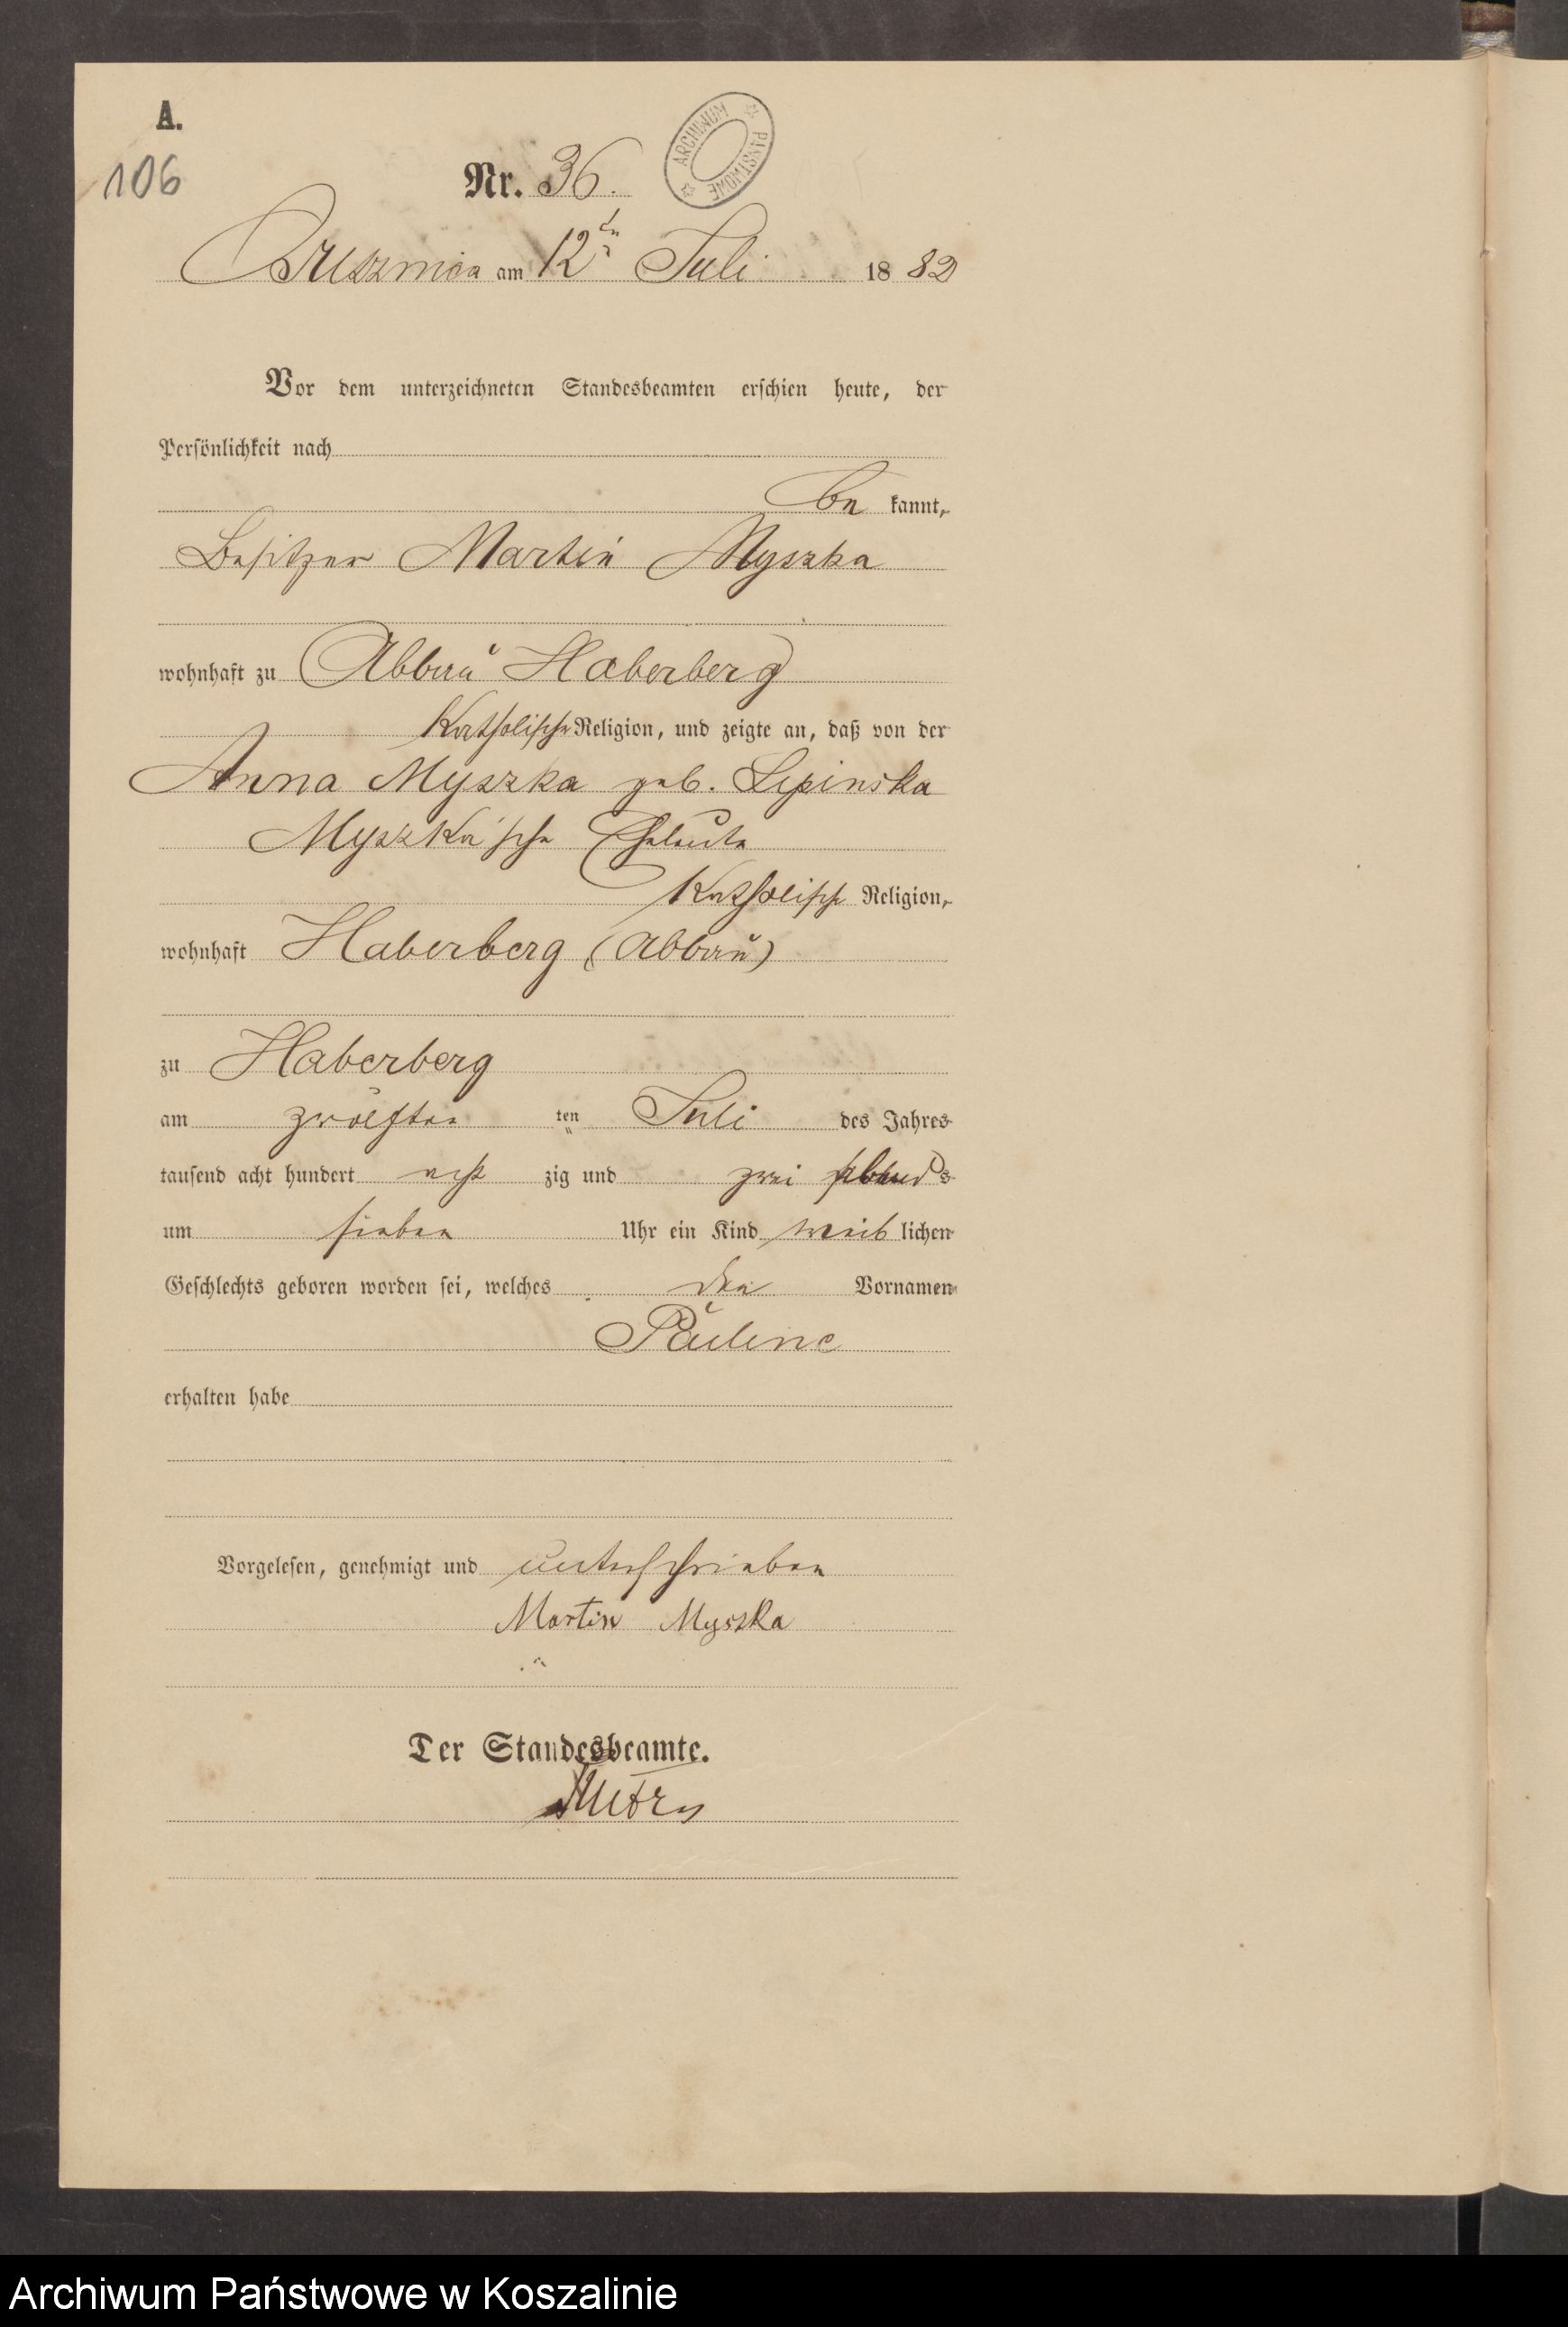 A.
106
Nr. 36.
ARCHIWUM PAŃSTWOWE
am 12ten Juli 1882
Vor dem unterzeichneten Standesbeamten erschien heute, der
Persönlichkeit nach
be kannt,
Besitzer Martin Myszka
wohnhaft zu Abbau Haberberg
Katholische Religion, und zeigte an, daß von der
Anna Myszka geb. Lepinska
Myszka'sche Eheleute
Katholisch Religion,
wohnhaft Haberberg (Abbau)
zu Haberberg
am zwölften ten Juli des Jahres
tausend acht hundert acht zig und zwei Abends
um sieben Uhr ein Kind weib lichen
Geschlechts geboren worden sei, welches den Vornamen
Pauline
erhalten habe
Vorgelesen, genehmigt und unterschrieben
Martin Myszka
Der Standesbeamte.
Archiwum Państwowe w Koszalinie